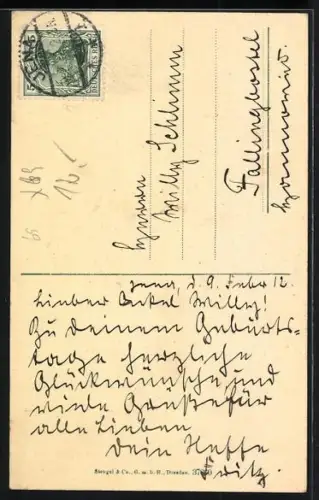 JENA
DEUTSCHES REICH
12.-
Herrn
Willy Schlimm
Fallingbostel
Hannover.
Jena, d. 9. Febr 12.
Lieber Onkel Willy!
Zu deinem Geburts-
tage herzliche
Glückwünsche und
viele Grüße für
alle Lieben
Dein Neffe
Fritz.
Stengel & Co., G. m. b. H., Dresden.